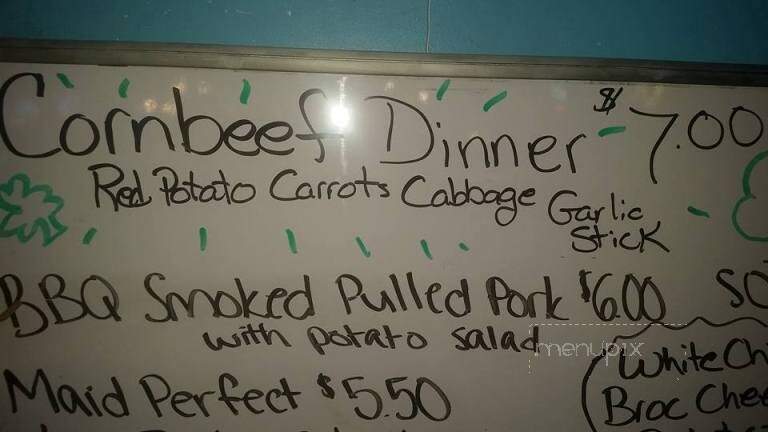 Cornbeef Dinner $7.00
Red Potato Carrots Cabbage Garlic
Stick
BBQ Smoked Pulled Pork $6.00
with potato salad
Maid Perfect $5.50
SO
White Chi
Broc Chee
menupix